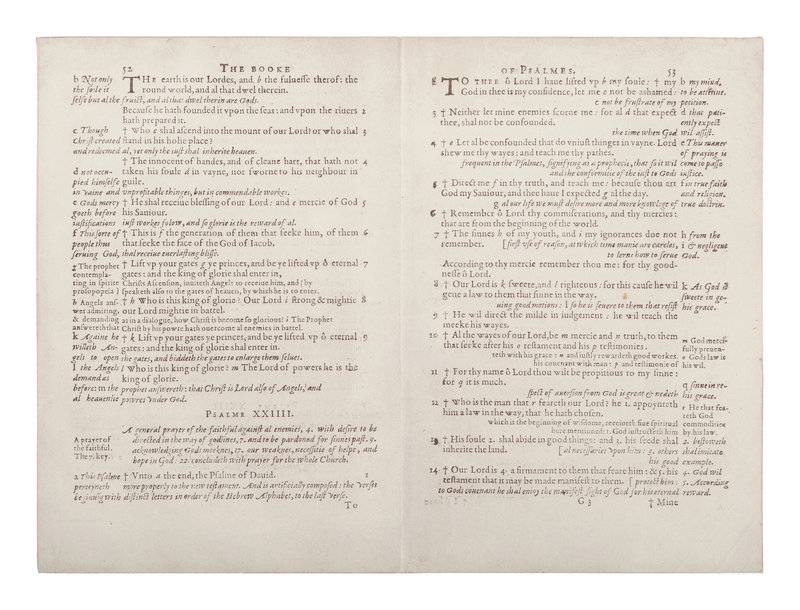 52 THE BOOKE
b Not only THE earth is our Lordes, and b the fulnesse therof: the
the soile it round world, and al that dwel therein.
selfe but al the fruict, and al that dwel therin are Gods.
Because he hath founded it vpon the seas: and vpon the riuers 2
hath prepared it.
c Though † Who c shal ascend into the mount of our Lord? or who shal 3
Christ created stand in his holie place?
and redemed al, yet only the iust shal inherite heauen.
† The innocent of handes, and of cleane hart, that hath not 4
d not occu- taken his soule d in vayne, nor sworne to his neighbour in
pied himselfe guile.
in vaine and vnprofitable thinges, but in commendable workes.
e Gods mercy † He shal receiue blessing of our Lord: and e mercie of God 5
goeth before his Sauiour.
iustifications iust workes folow, and so glorie is the reward of al.
f This sorte of † This is f the generation of them that seeke him, of them 6
people thus that seeke the face of the God of Iacob.
seruing God, shal receiue euerlasting blisse.
g The prophet † Lift vp your gates g ye princes, and be ye lifted vp ô eternal 7
contempla- gates: and the king of glorie shal enter in,
ting in spirite Christs Ascension, inuiteth Angels to receiue him, and (by
prosopopeia) speaketh also to the gates of heauen, by which he is to enter.
h Angels ans- † h Who is this king of glorie? Our Lord i strong & mightie 8
wer admiring, our Lord mightie in battel.
& demanding as in a dialogue, how Christ is become so glorious: i The Prophet
answereth that Christ by his powre hath ouercome al enemies in battel.
k Againe he † k Lift vp your gates ye princes, and be ye lifted vp ô eternal 9
willeth An- gates: and the king of glorie shal enter in.
gels to open the gates, and biddeth the gates to enlarge them selues.
l the Angels l Who is this king of glorie? m The Lord of powres he is the
demand as king of glorie.
before: m the prophet answereth: that Christ is Lord also of Angels, and
al heauenlie powres vnder God.
PSALME XXIIII.
A general prayer of the faithful against al enemies, 4. with desire to be
A prayer of directed in the way of godlines, 7. and to be pardoned for sinnes past. 9.
the faithful. acknowledging Gods meeknes, 17. our weaknes, necessitie of helpe, and
The 7. key. hope in God: 22. concludeth with prayer for the whole Church.
a This Psalme † Vnto a the end, the Psalme of Dauid. 1
perteyneth more properly to the new testament. And is artificially composed: the verses
beginnig with distinct letters in order of the Hebrew Alphabet, to the last verse.
To
OF PSALMES. 53
TO THEE ô Lord I haue lifted vp b my soule: † my b my mind,
God in thee is my confidence, let me c not be ashamed: to be attentiue.
c not be frustrate of my petition.
3 † Neither let mine enemies scorne me: for al d that expect d that pati-
thee, shal not be confounded. ently expect
the time when God wil assist.
4 † e Let al be confounded that do vniust thinges in vayne. Lord e Thu maner
shew me thy wayes: and teach me thy pathes. of praying is
frequent in the Psalmes, signifying as a prophecie, that so it wil come to passe
and the conformitie of the iust to Gods iustice.
5 † Direct me f in thy truth, and teach me: because thou art f in true faith
God my Sauiour, and thee haue I expected g al the day. and religion.
g al our life we must desire more and more knowlege of true doctrin.
6 † Remember ô Lord thy commiserations, and thy mercies:
that are from the beginning of the world.
7 † The sinnes h of my youth, and i my ignorances doe not h from the
remember. [first vse of reason, at which time manie are careles, i & negligent
to lerne how to serue God.
According to thy mercie remember thou me: for thy good-
nesse ô Lord.
8 † Our Lord is k sweete, and l righteous: for this cause he wil k As God is
geue a law to them that sinne in the way. sweete in ge-
uing good motions: l so he is seuere to them that resist his grace.
9 † He wil direct the milde in iudgement: he wil teach the
meeke his wayes.
10 † Al the wayes of our Lord, be m mercie and n truth, to them m God merci-
that seeke after his o testament and his p testimonies. fully preuen-
teth with his grace: n and iustly rewardeth good workes. o Gods law is
his couenant with man: p and testimonie of his wil.
11 † For thy name ô Lord thou wilt be propitious to my sinne:
for q it is much. q sinne in re-
spect of auersion from God is great & nedeth his grace.
12 † Who is the man that r feareth our Lord? he 1. appoynteth r He that fea-
him a law in the way, that he hath chosen. reth God
which is the beginning of wisdome, receiueth fiue spiritual commodities
here mentioned: 1. God instructeth him by his law.
13 † His soule 2. shal abide in good things: and 3. his seede shal 2. bestoweth
inherite the land. [al necessaries vpon him: 3. others shal imitate
his good example.
14 † Our Lord is 4. a firmament to them that feare him: & 5. his 4. God wil
testament that it may be made manifest to them. [protect him: 5. According
to Gods couenant he shal enioy the manifest sight of God for his eternal reward.
G 3 † Mine